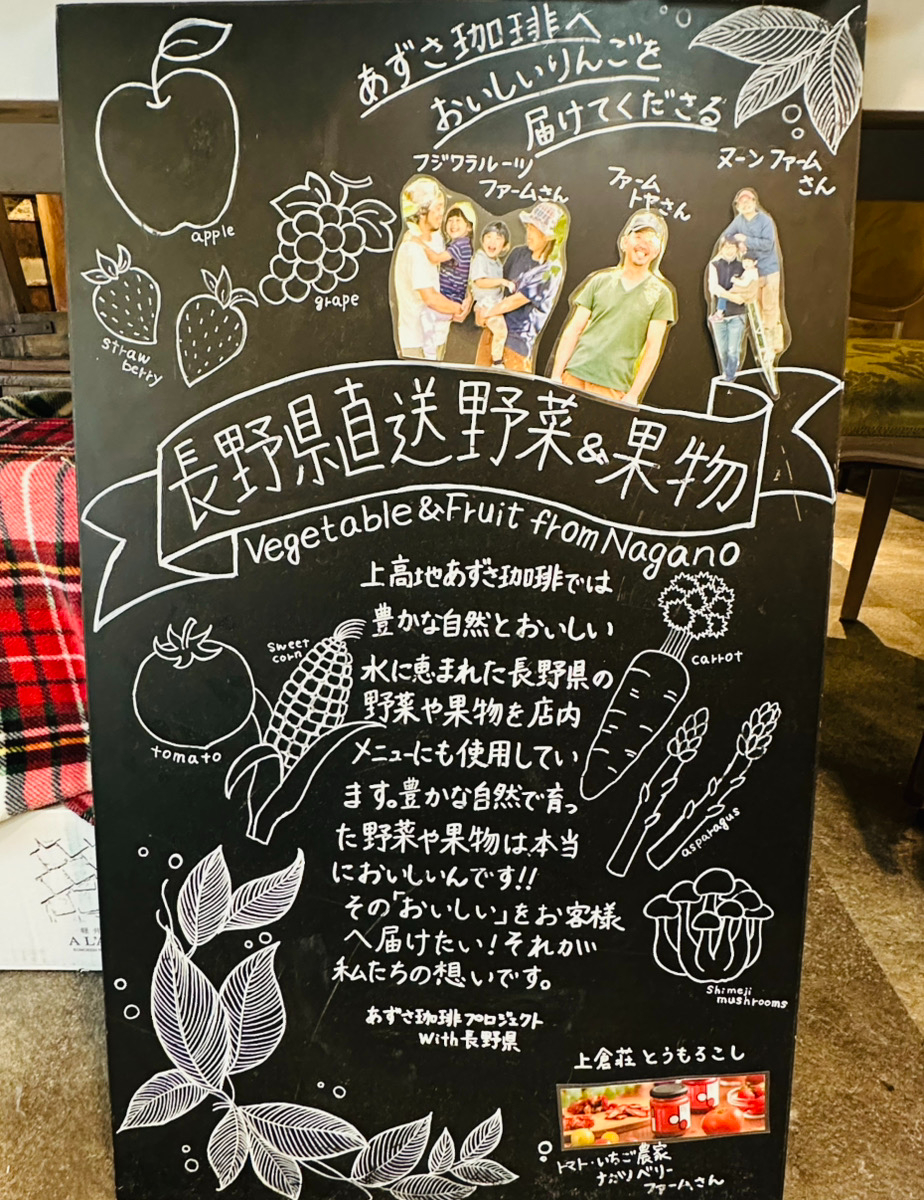 あずさ珈琲へ
おいしいりんごを
届けてくださる
フジワラルーツ
ファームさん
ファーム
トヤさん
ヌーンファーム
さん
apple
grape
straw
berry
長野県直送野菜&果物
Vegetable&Fruit from Nagano
上高地あずさ珈琲では
豊かな自然とおいしい
水に恵まれた長野県の
野菜や果物を店内
メニューにも使用してい
ます。豊かな自然で育っ
た野菜や果物は、本当
においしいんです!!
その「おいしい」をお客様
へ届けたい!それが
私たちの想いです。
あずさ珈琲プロジェクト
With長野県
sweet
corn
tomato
carrot
asparagus
Shimeji
mushrooms
上倉荘 とうもろこし
トマト・いちご農家
ベリー
ファームさん